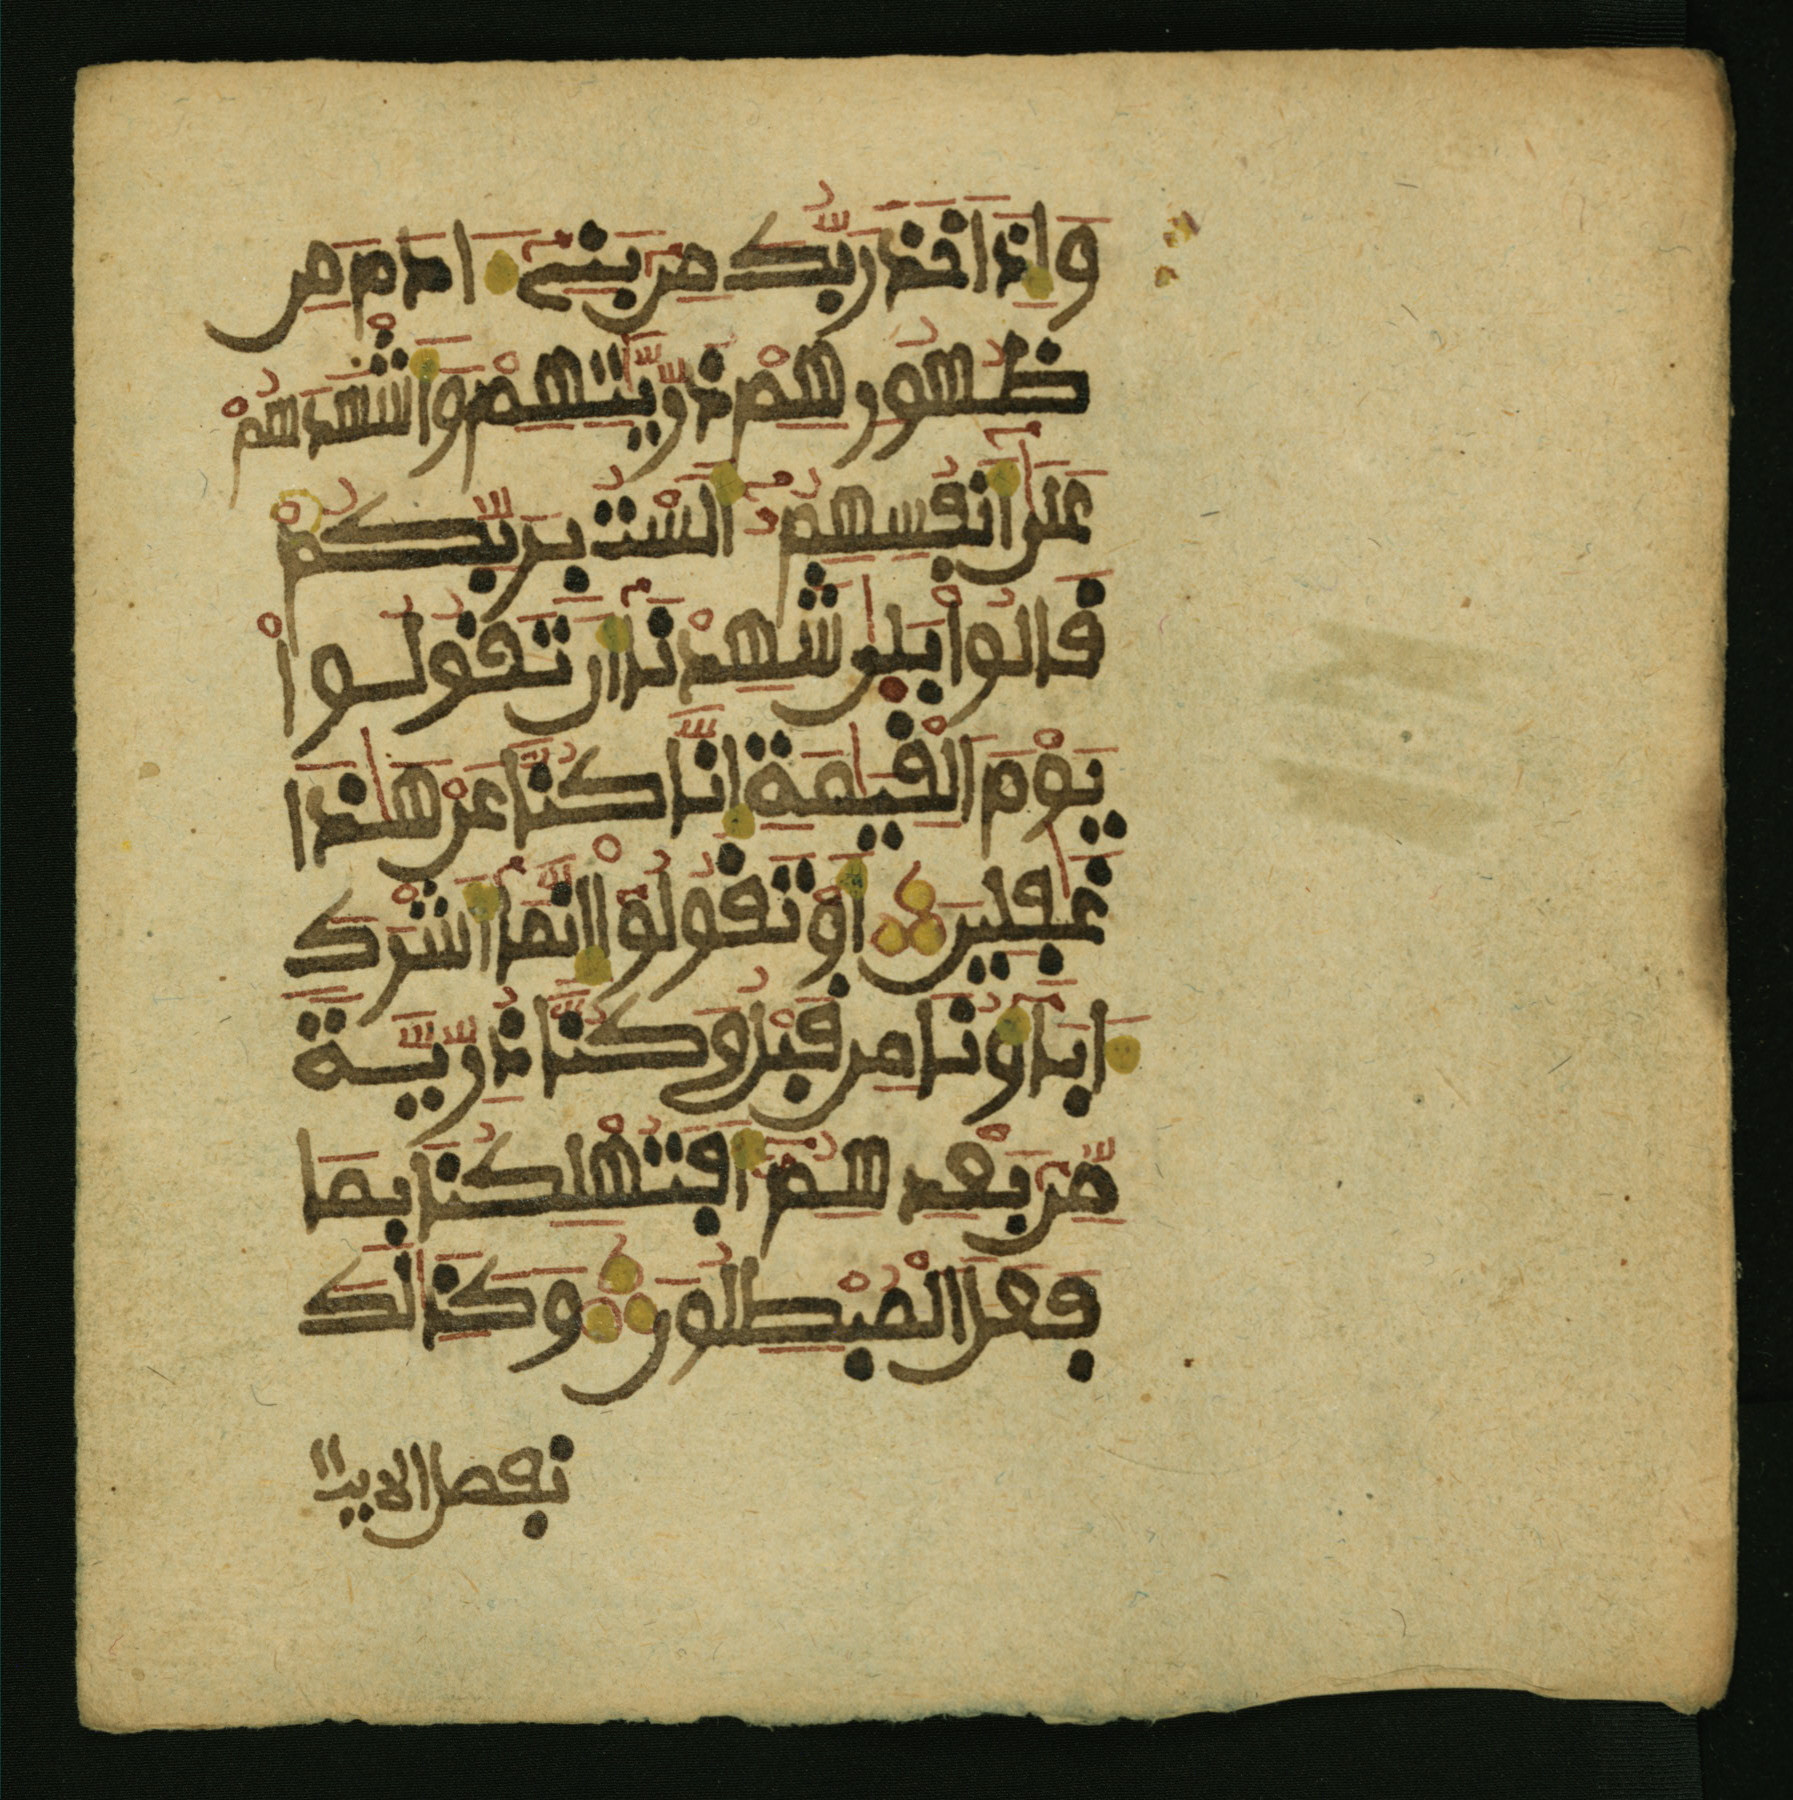 وَإِذَ اخَذَ رَبُّكَ مِن بَنِےٓ ءَادَمَ مِن
ظُهُورِهِمْ ذُرِّيَّٰتِهِمْ وَأَشْهَدَهُمْ
عَلَىٰٓ أَنفُسِهِمُۥٓ أَلَسْتُ بِرَبِّكُمْ
قَالُواْ بَلَىٰ شَهِدْنَآ أَن تَقُولُواْ
يَوْمَ الْقِيَٰمَةِ إِنَّا كُنَّا عَنْ هَٰذَا
غَٰفِلِينَ أَوْ تَقُولُوٓاْ إِنَّمَآ أَشْرَكَ
ءَابَآؤُنَا مِن قَبْلُ وَكُنَّا ذُرِّيَّةً
مِّنۢ بَعْدِهِمُۥٓ أَفَتُهْلِكُنَا بِمَا
فَعَلَ الْمُبْطِلُونَ وَكَذَٰلِكَ
نفصل الايت